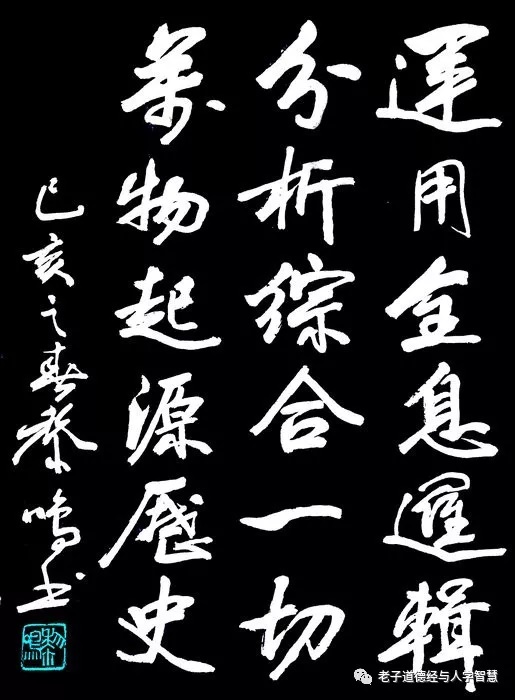 運用全息邏輯
分析綜合一切
萬物起源歷史
己亥之春黎鳴书
老子道德经与人学智慧